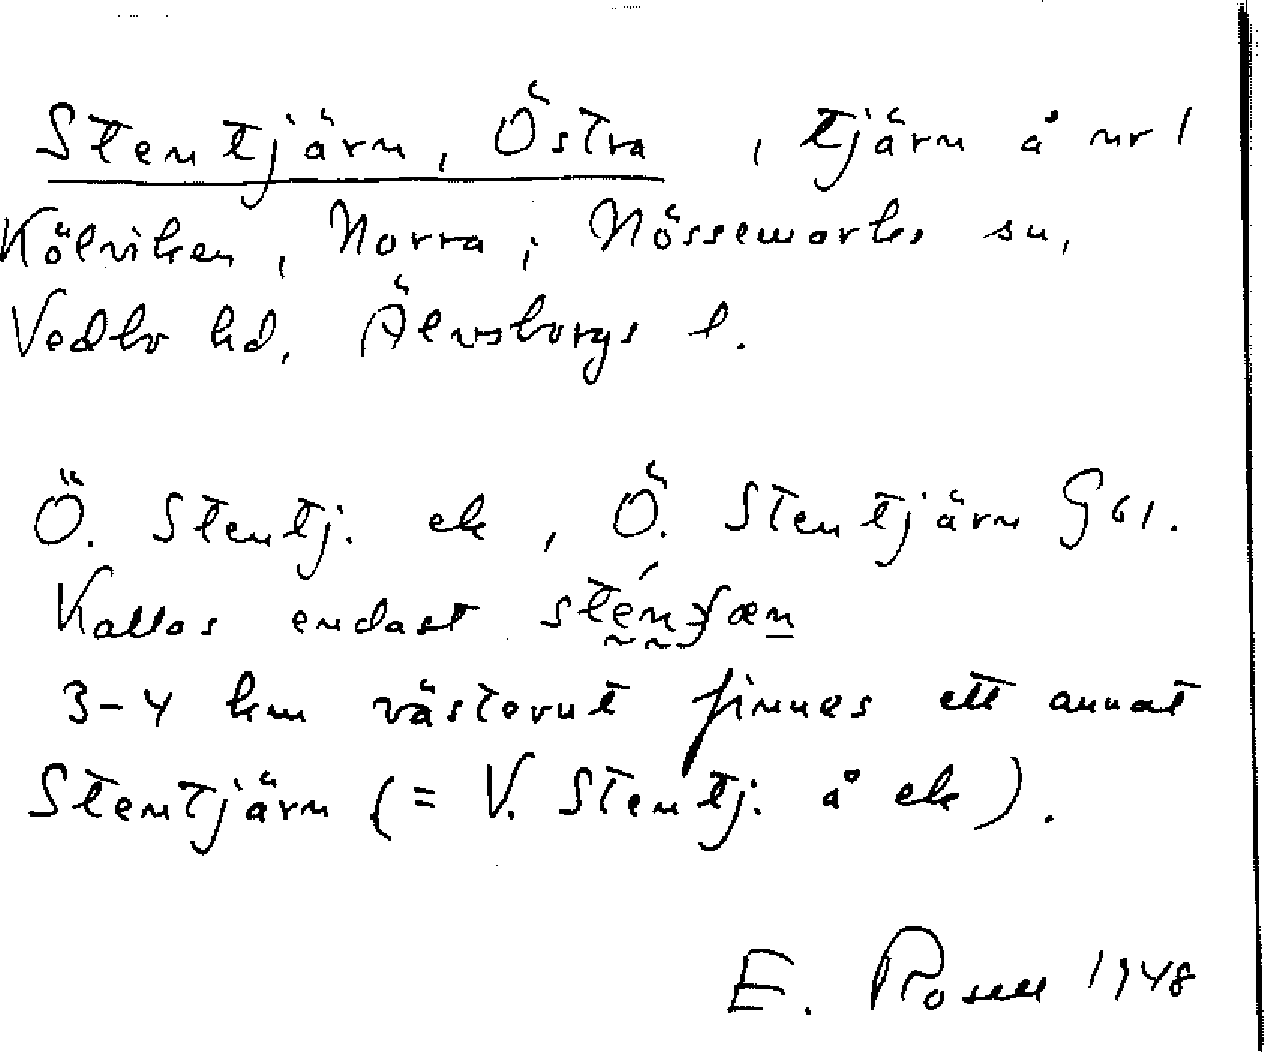 Stentjärn, Östra, tjärn å nr 1
Kölviken, Norra; Nössemarks sn,
Vedbo hd, Älvsborgs l.
Ö. Stentj. ek, Ö. Stentjärn G 61.
Kallas endast
3-4 km västerut finnes ett annat
Stentjärn (= V. Stentj. å ek).
E. Rosen 1948